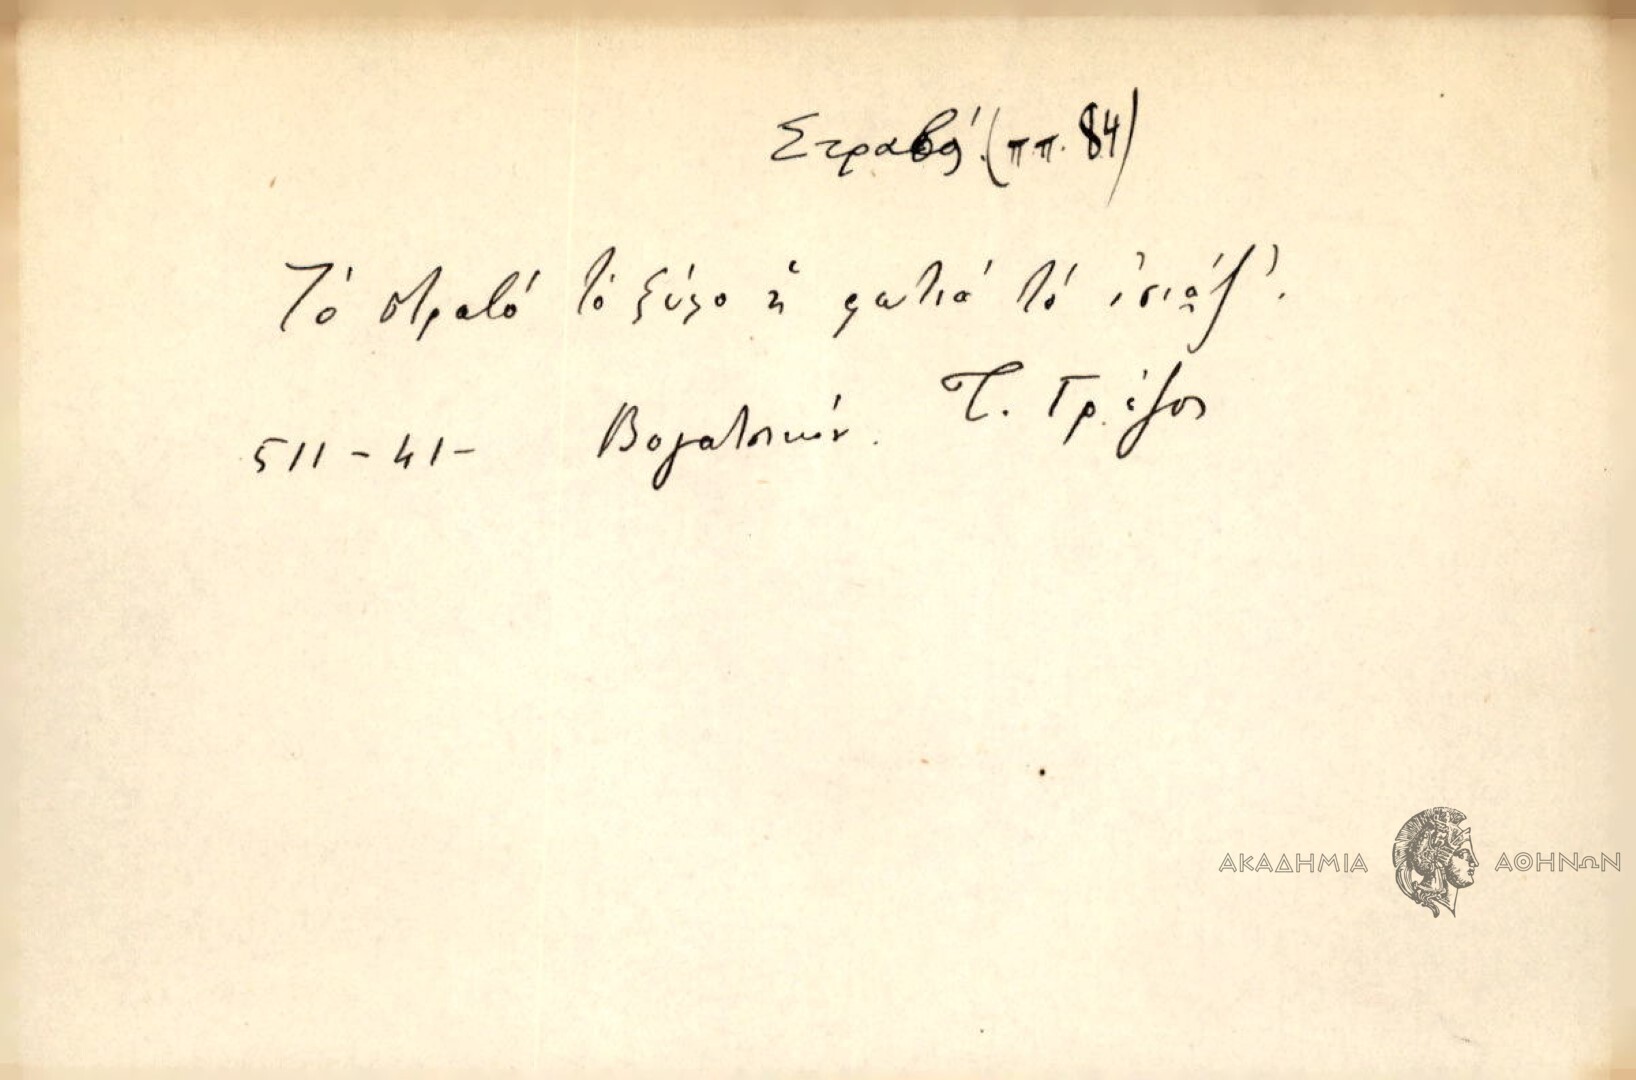 Στραβά (ππ. 84)
Τό στραβό τό ξύλο ἡ φωτιά τό ἰσιάζ'.
Τ. Γρ.
511-41- Βογατσικόν.
ΑΚΑΔΗΜΙΑ ΑΘΗΝΩΝ